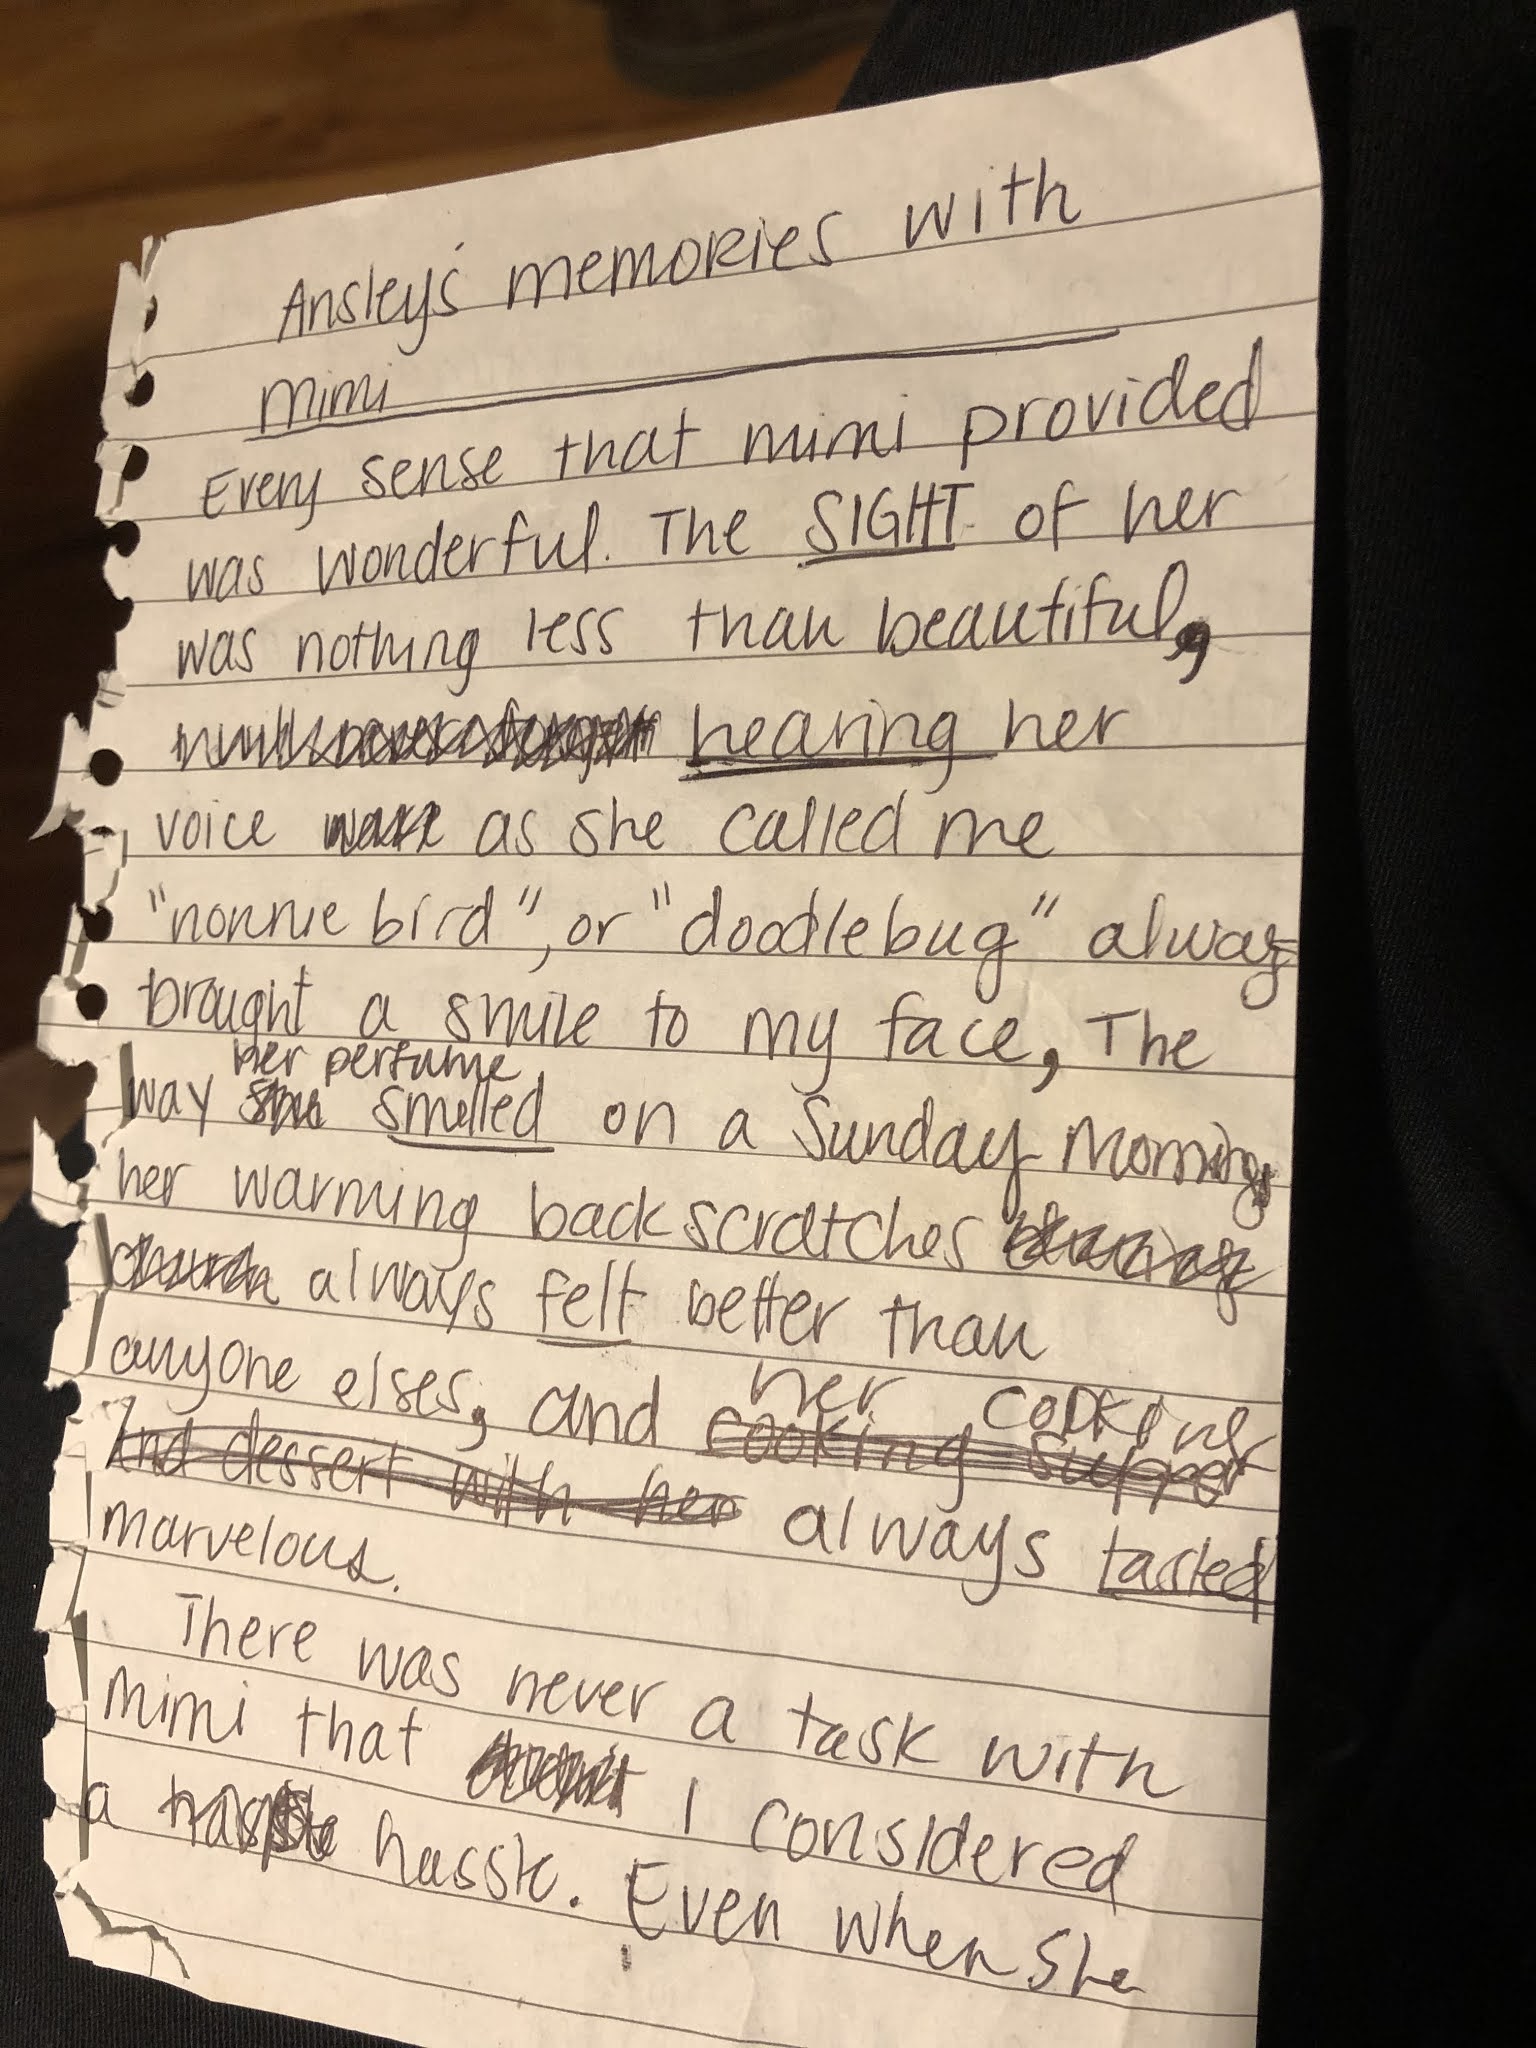 Ansley's memories with
mimi
Every sense that mimi provided
was wonderful. The SIGHT of her
was nothing less than beautiful,
hearing her
voice as she called me
"nonnie bird", or "doodlebug" always
brought a smile to my face, The
her perfume
way smelled on a Sunday morning,
her warming back scratches
church always felt better than
anyone elses, and her cooking
cooking supper
And dessert with her always tasted
marvelous.
There was never a task with
mimi that I considered
a hassle. Even when she